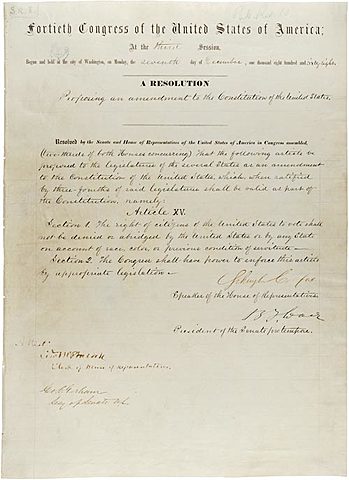 S.R. 8
Fortieth Congress of the United States of America;
At the third Session,
Begun and held at the city of Washington, on Monday, the seventh day of December, one thousand eight hundred and sixty-eight
A RESOLUTION
Proposing an amendment to the Constitution of the United States.
Resolved by the Senate and House of Representatives of the United States of America in Congress assembled,
(two-thirds of both Houses concurring) That the following article be
proposed to the legislatures of the several States as an amendment
to the Constitution of the United States, which, when ratified
by three-fourths of said legislatures shall be valid as part of
the Constitution, namely:
Article XV.
Section 1. The right of citizens of the United States to vote shall
not be denied or abridged by the United States or by any State
on account of race, color, or previous condition of servitude—
Section 2. The Congress shall have power to enforce this article
by appropriate legislation—
Schuyler Colfax
Speaker of the House of Representatives.
B. F. Wade
President of the Senate pro tempore.
Attest
Clerk of House of Representatives.
Geo. C. Gorham
Secy of Senate U.S.